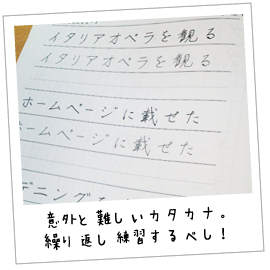 イタリアオペラを観る
イタリアオペラを観る
ホームページに載せた
ホームページに載せた
デニング
意外と難しいカタカナ。
繰り返し練習するべし！